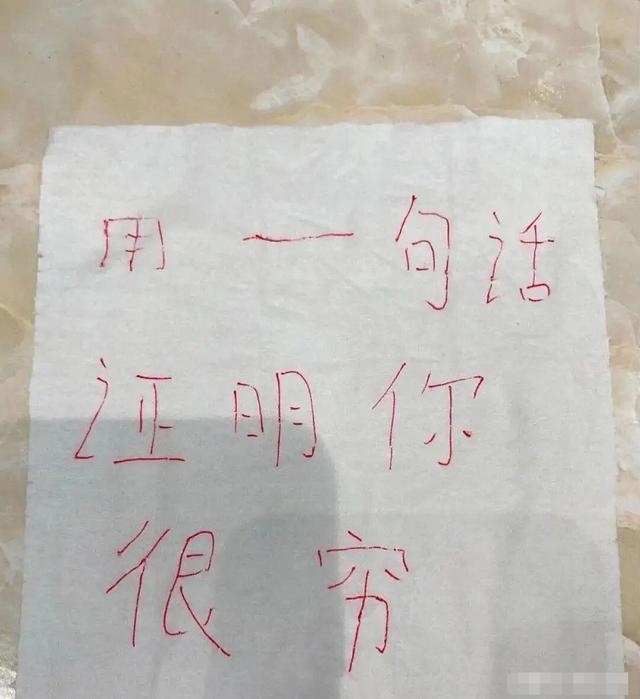 用一句话
证明你
很穷